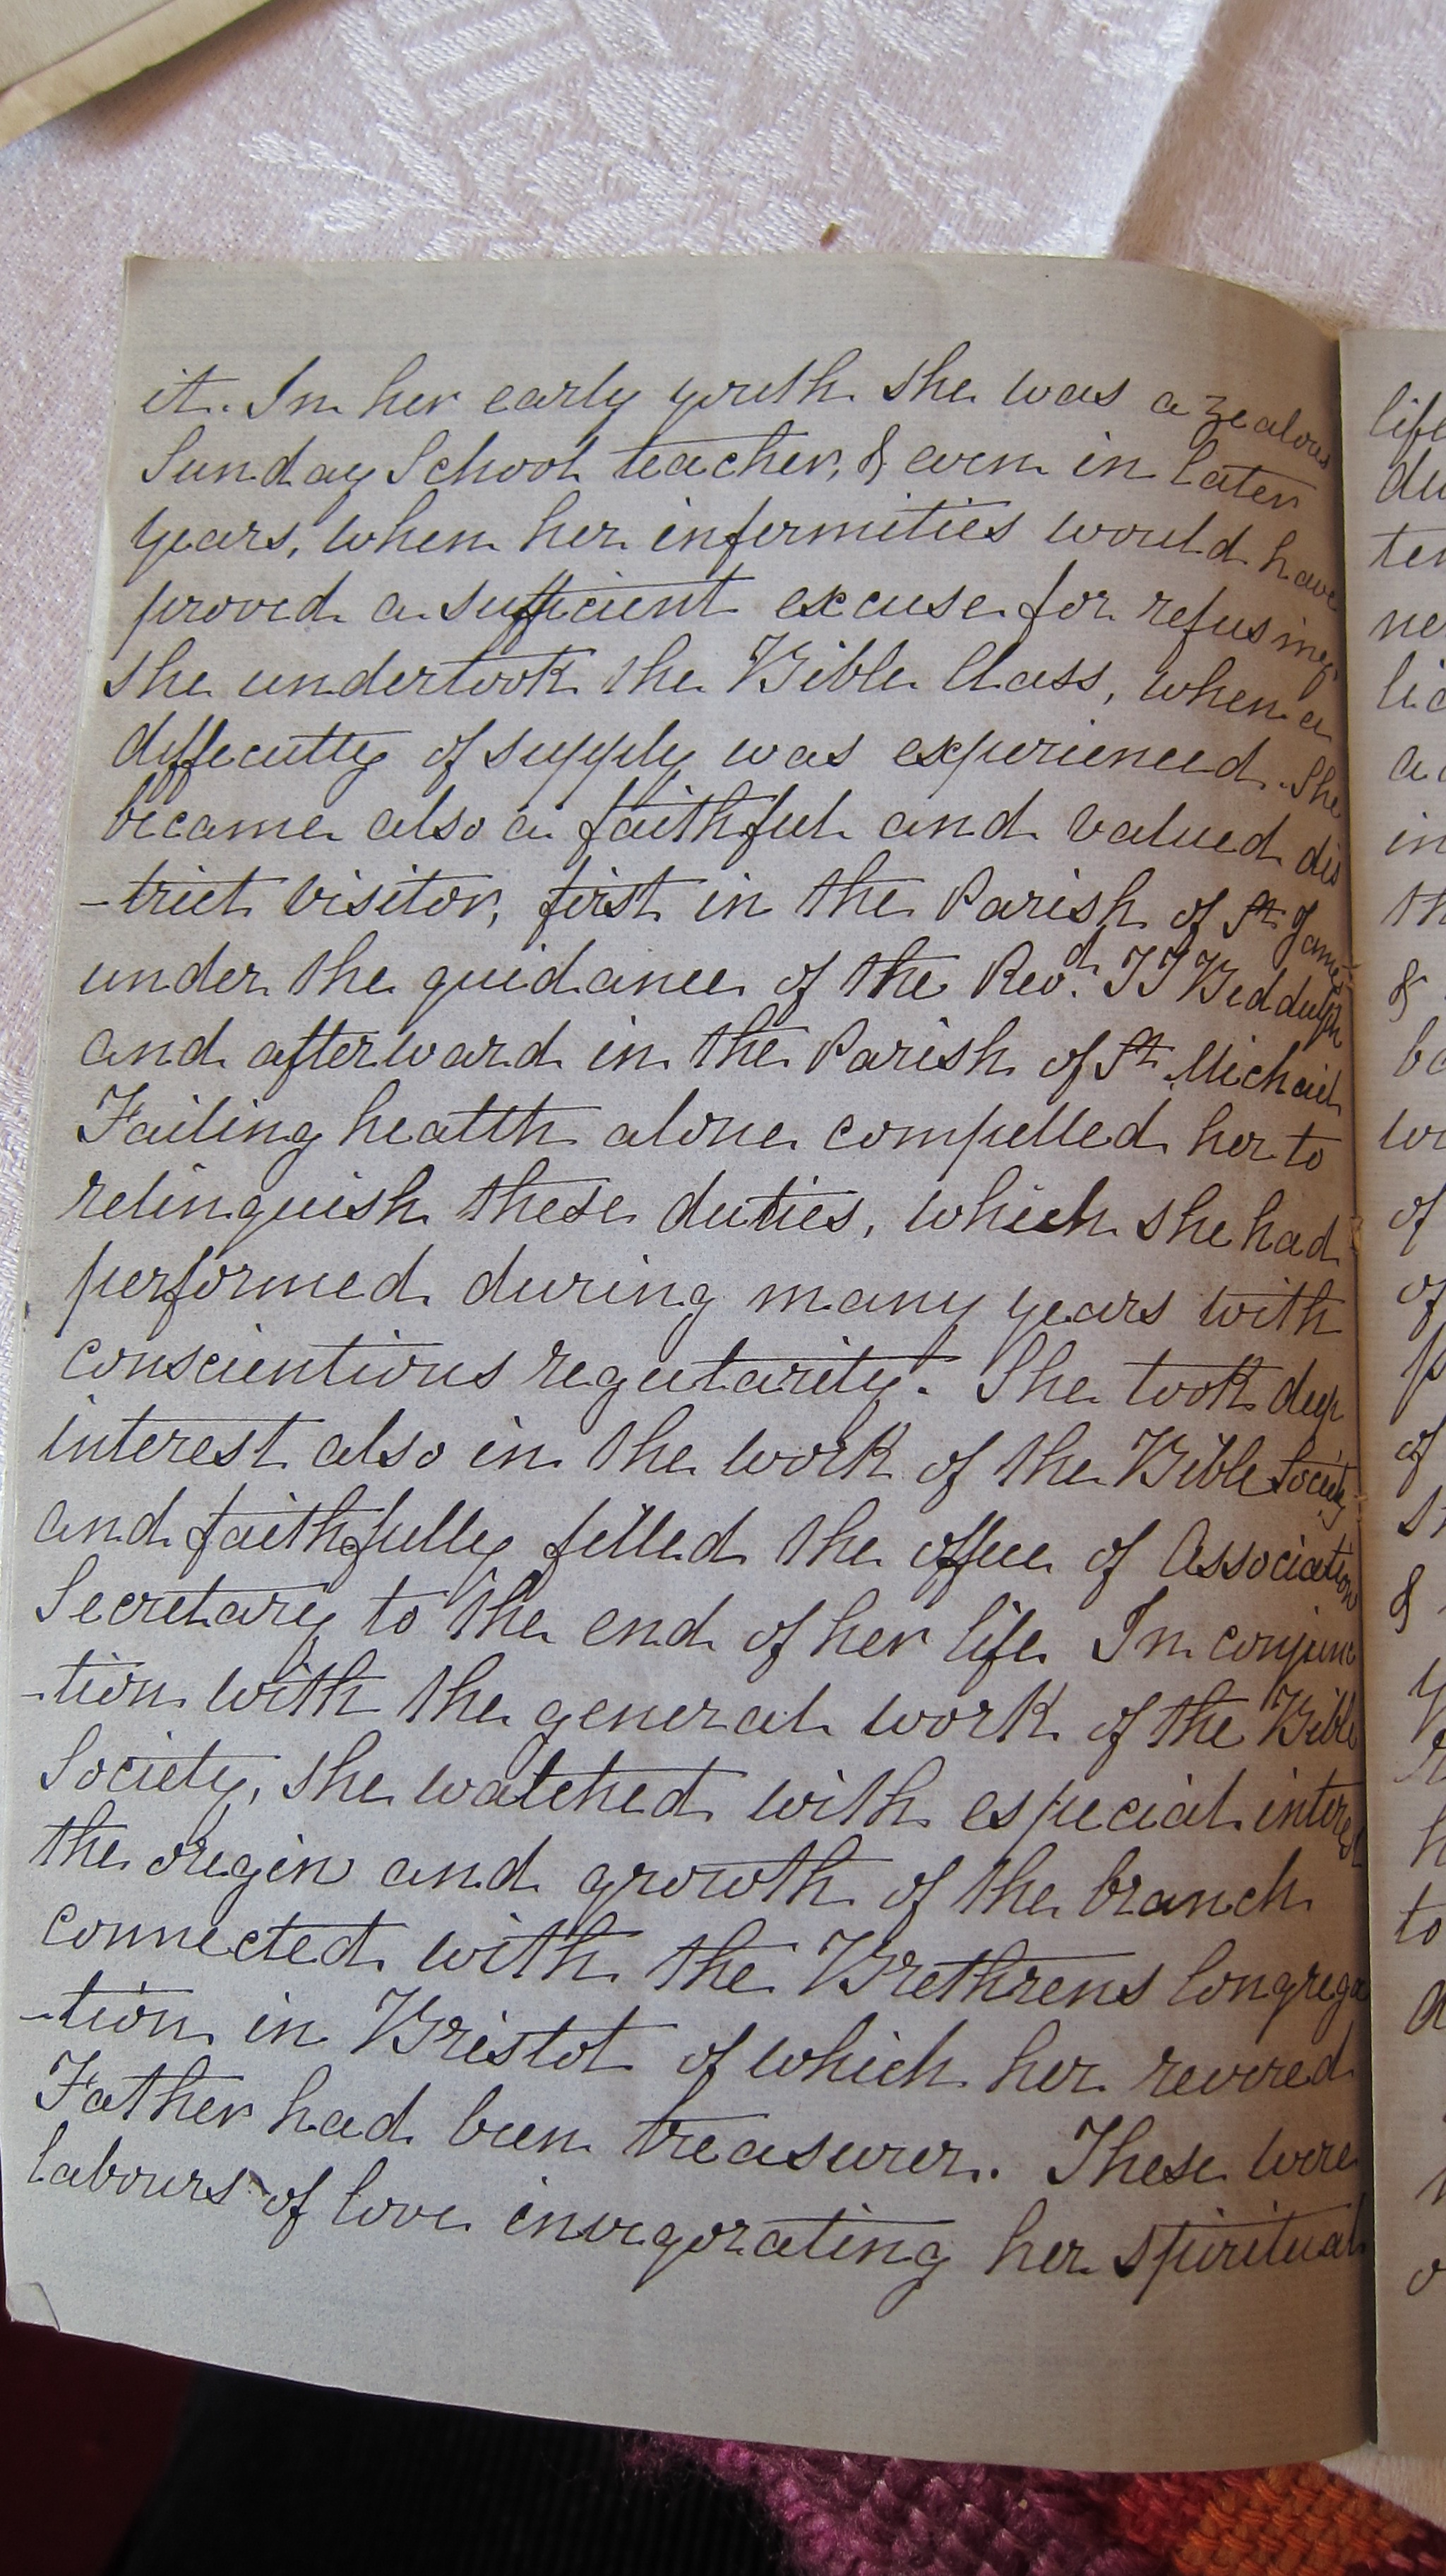 it. In her early youth she was a zealous
Sunday School teacher, & even in later
years, when her infirmities would have
proved a sufficient excuse for refusing
she undertook the Bible Class, when a
difficulty of supply was experienced. She
became also a faithful and valued dis
-trict visitor, first in the Parish of St James
under the guidance of the Revd. T T Biddulph
and afterward in the Parish of St Michael
Failing health alone compelled her to
relinquish these duties, which she had
performed during many years with
conscientious regularity. She took deep
interest also in the work of the Bible Society
and faithfully filled the office of Association
Secretary to the end of her life In conjunc
-tion with the general work of the Bible
Society, she watched with especial interest
the origin and growth of the branch
connected with the Brethrens Congrega
-tion in Bristol of which her revered
Father had been treasurer. These were
labours of love invigorating her spiritual
life
of
of
of
&
to